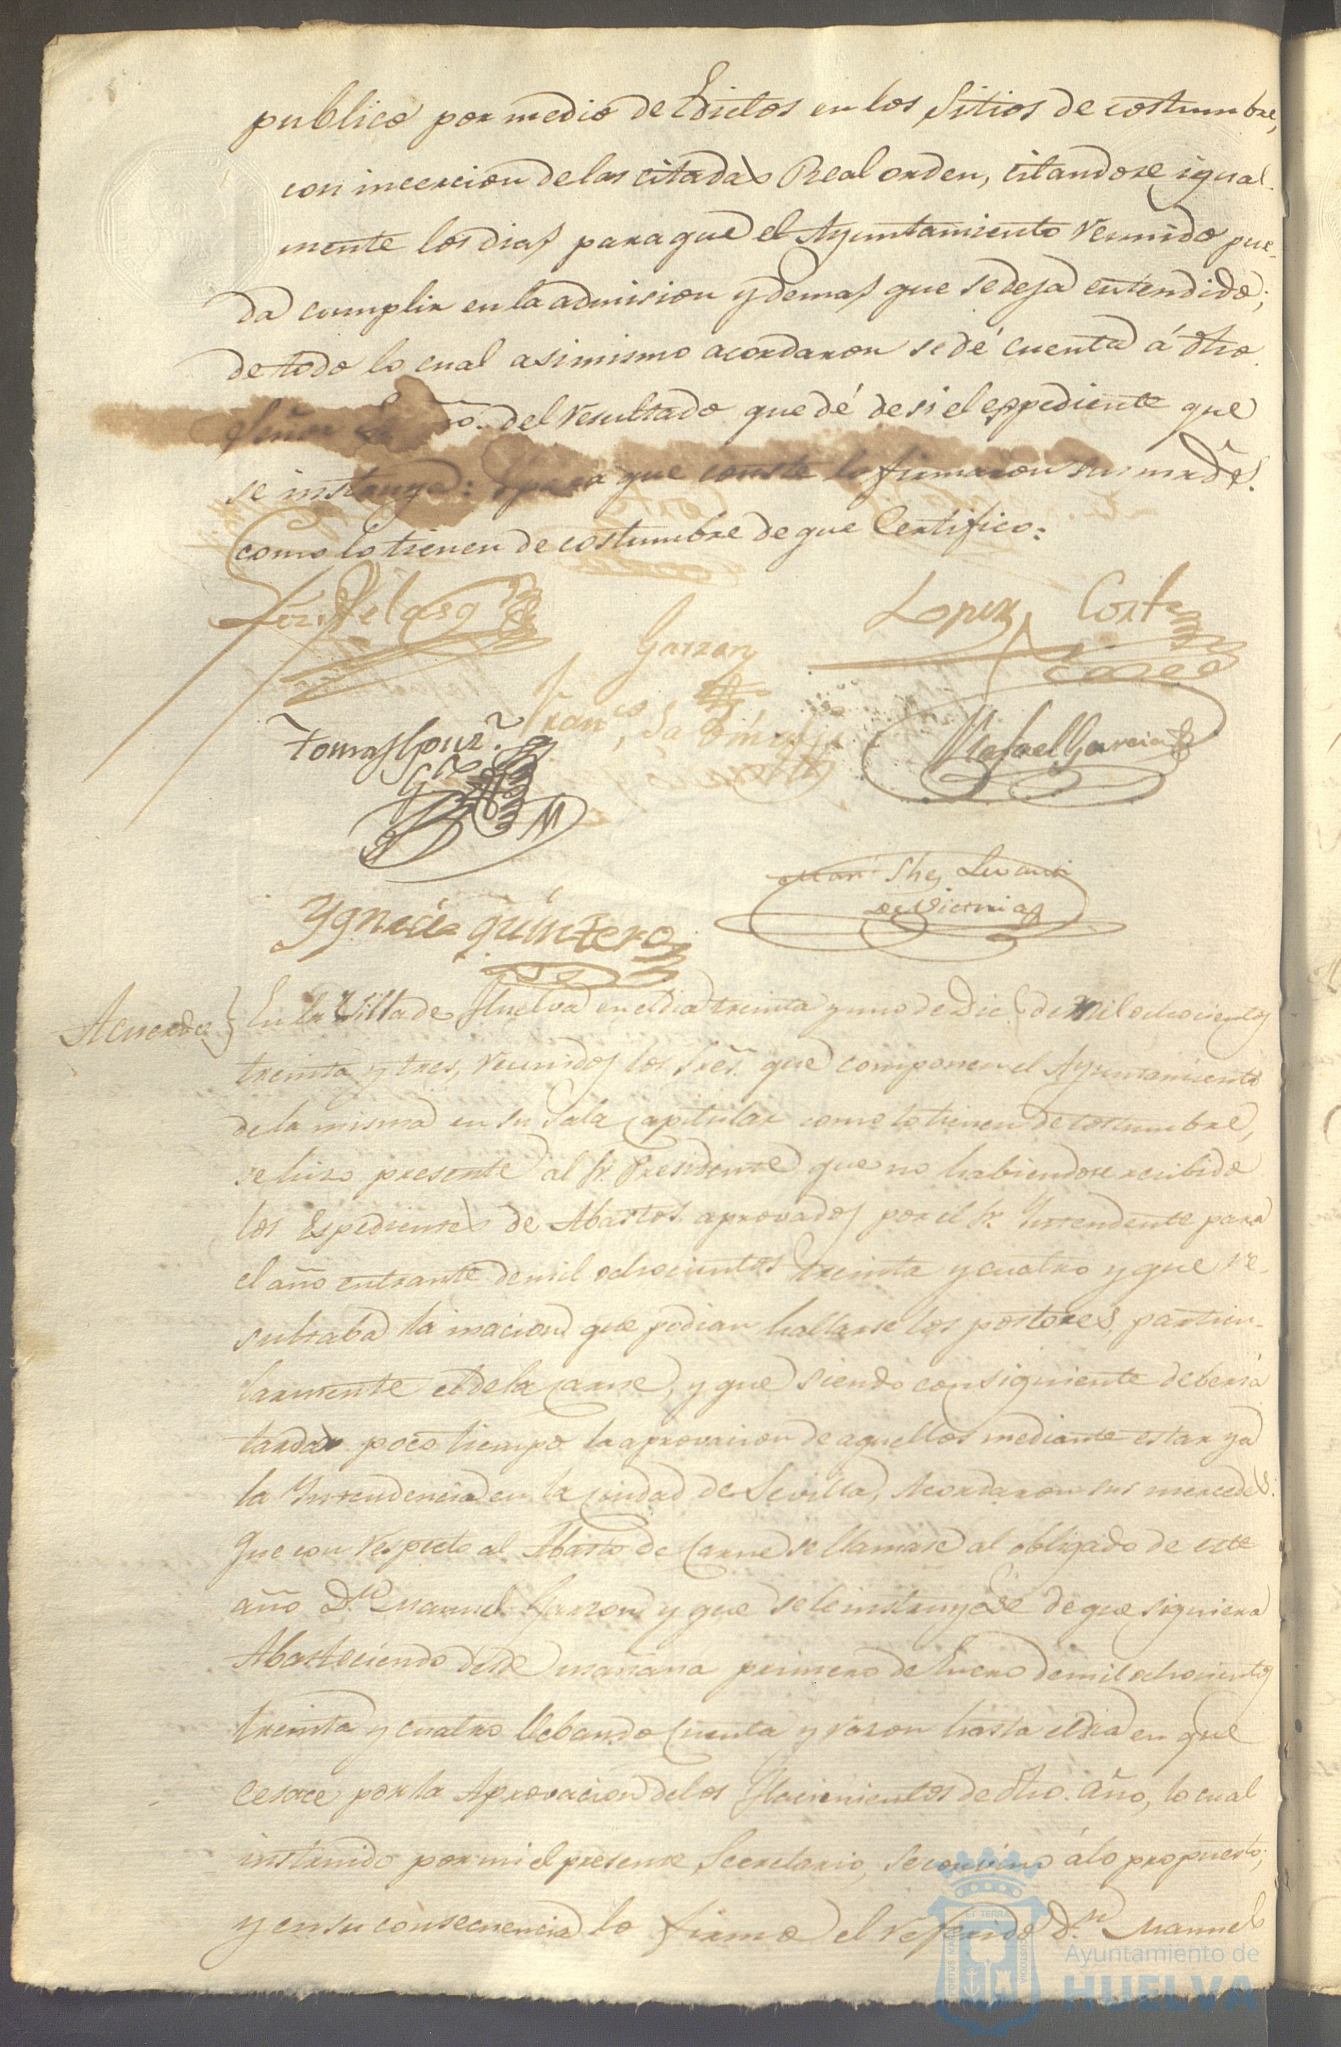 publico por medio de Edictos en los Sitios de costumbre,
con incercion de las citadas Real orden, citandose igual-
mente los dias para que el Ayuntamiento reunido pue-
da cumplir en la admision y demas que se deja entendido;
de todo lo cual asimismo acordaron se dé cuenta á dho
Señor del resultado que dé de si el espediente que
se instruya: y para que conste lo firmaron sus mrdes.
como lo tienen de costumbre de que Certifico=
Lopez Cortes
Garzon
Tomas
Rafael Garcia
Ygnacio quintero
de Victoria
Acuerdo } En la Villa de Huelva en el dia treinta y uno de Dic.e de mil ochocientos
treinta y tres, reunidos los Sres. que componen el Ayuntamiento
de la misma en su Sala Capitular como lo tienen de costumbre,
se hizo presente al Sr. Presidente que no habiendose recibido
los Espedientes de Abastos aprovados por el Sr. Yntendente para
el año entrante de mil ochocientos treinta y cuatro y que re-
sultaba la inaciond que podian hallarse los postores particu-
larmente el de la Carne, y que siendo consiguiente deberia
tardar poco tiempo la aprovacion de aquellos mediante estar ya
la Yntendencia en la Ciudad de Sevilla, Acordaron sus mercedes:
Que con respecto al Abasto de Carne se llamase al obligado de este
año D.n Manuel Garzon y que se le instruyese de que siguiera
Abasteciendo desde mañana primero de Enero de mil ochocientos
treinta y cuatro llebando Cuenta y razon hasta el dia en que
cesace por la Aprovacion de los Hacimientos de dho. Año, lo cual
instruido por mi el presente Secretario, se convino á lo propuesto;
y en su consecuencia lo firmo el referido D.n Manuel
Ayuntamiento de
HUELVA